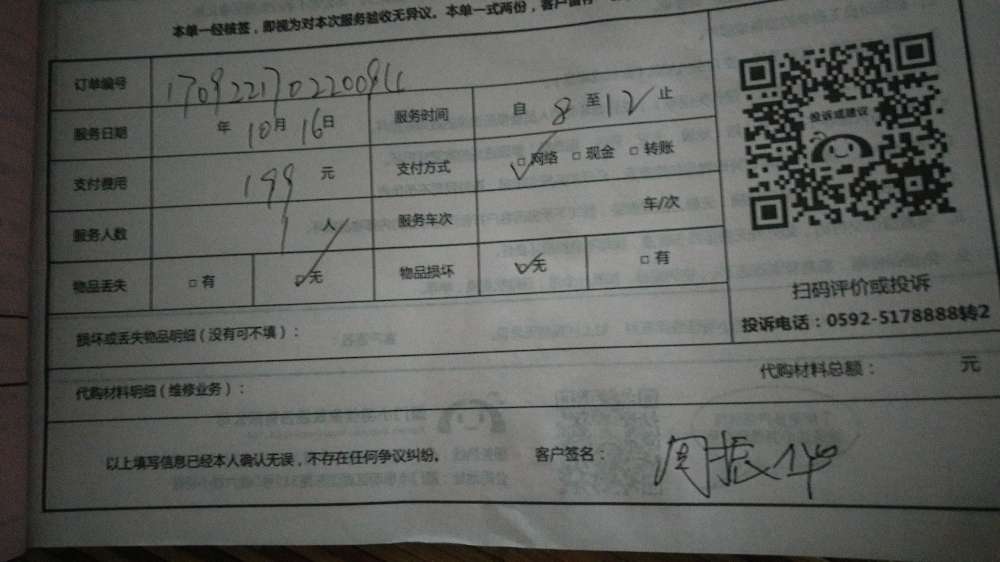 本单一经核签，即视为对本次服务验收无异议。本单一式两份，客户留存一
订单编号
服务日期 年 10月 16日 服务时间 自 8 至 12 止
支付费用 199 元 支付方式 □网络 □现金 □转账
服务人数 1 人 服务车次 车/次
物品丢失 □有 □无 物品损坏 □无 □有
投诉或建议
扫码评价或投诉
投诉电话：0592-5178888转2
损坏或丢失物品明细（没有可不填）：
代购材料明细（维修业务）： 代购材料总额： 元
以上填写信息已经本人确认无误，不存在任何争议纠纷。 客户签名： 周振华